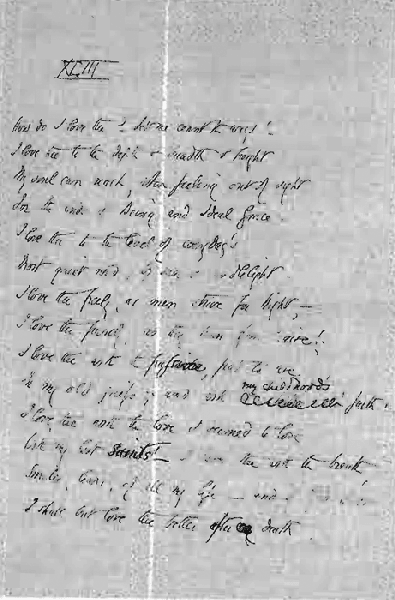 XLIII
How do I love thee? Let me count the ways!
I love thee to the depth & breadth & height
My soul can reach, when feeling out of sight
For the ends of Being and Ideal Grace.
I love thee to the level of everyday's
Most quiet need, by sun &
I love thee freely, as men strive for Right,—
I love thee purely, as they turn from Praise!
I love thee with the passion, put to use
In my old griefs, and with my childhood's faith.
I love thee with the love I seemed to lose
With my lost Saints! I love thee with the breath
Smiles, tears, of all my life — and
I shall but love thee better after death.